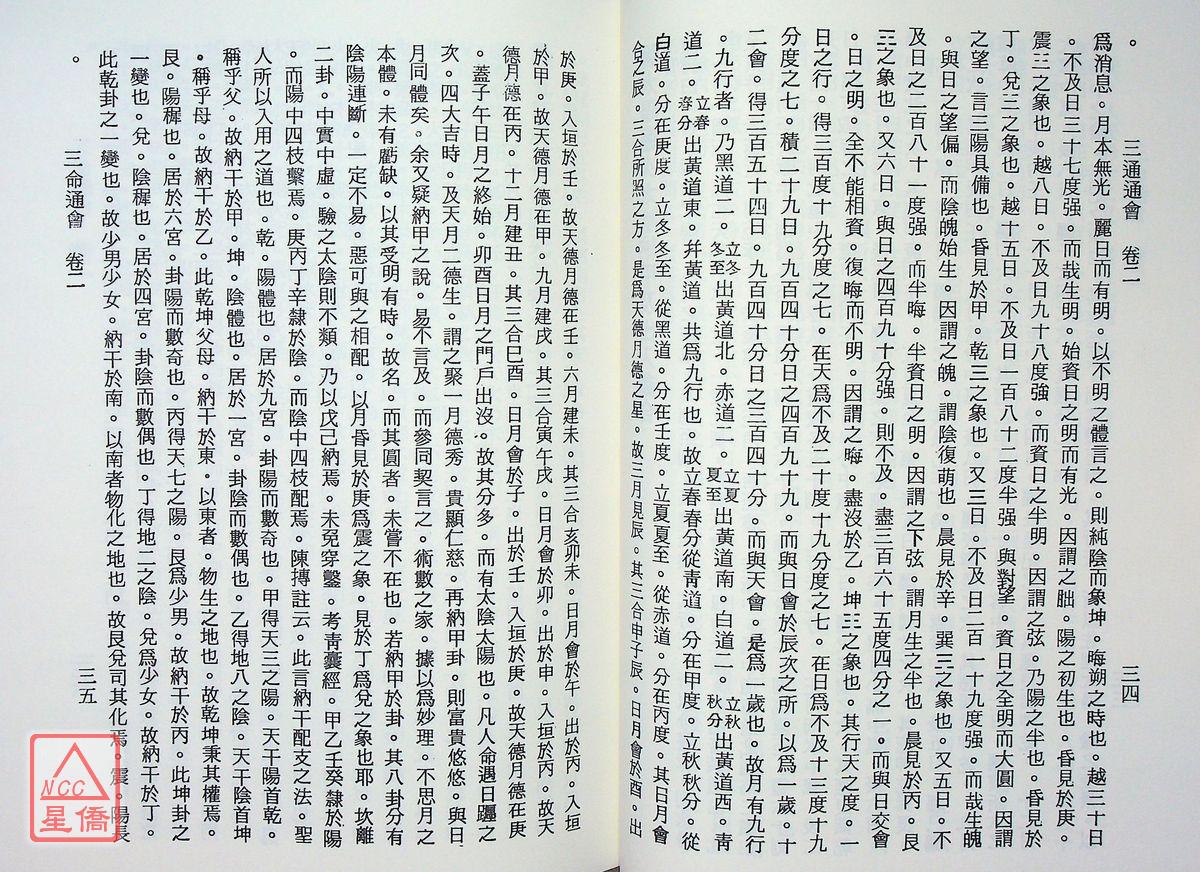 三通通會 卷二 三四
。
爲消息。月本無光。麗日而有明。以不明之體言之。則純陰而象坤。晦朔之時也。越三十日
。不及日三十七度强。而哉生明。始資日之明而有光。因謂之朏。陽之初生也。昏見於庚。
震☳之象也。越八日。不及日九十八度強。而資日之半明。因謂之弦。乃陽之半也。昏見於
丁。兌☱之象也。越十五日。不及日一百八十二度半强。與對望。資日之全明而大圓。因謂
之望。言三陽具備也。昏見於甲。乾☰之象也。又三日。不及日二百一十九度强。而哉生魄
。與日之望偏。而陰魄始生。因謂之魄。謂陰復萌也。晨見於辛。巽☴之象也。又五日。不
及日之二百八十一度强。而半晦。半資日之明。因謂之下弦。謂月生之半也。晨見於丙。艮
☶之象也。又六日。與日之四百九十分强。則不及。盡三百六十五度四分之一。而與日交會
。日之明。全不能相資。復晦而不明。因謂之晦。盡沒於乙。坤☷之象也。其行天之度。一
日之行。得三百度十九分度之七。在天爲不及二十度十九分度之七。在日爲不及十三度十九
分度之七。積二十九日。九百四十分日之四百九十九。而與日會於辰次之所。以爲一歲。十
二會。得三百五十四日。九百四十分日之三百四十分。而與天會。是爲一歲也。故月有九行
。九行者。乃黑道二。立冬冬至出黃道北。赤道二。立夏夏至出黃道南。白道二。立秋秋分出黃道西。靑
道二。立春春分出黃道東。幷黃道。共爲九行也。故立春春分從靑道。分在甲度。立秋秋分。從
白道。分在庚度。立冬冬至。從黑道。分在壬度。立夏夏至。從赤道。分在丙度。其日月會
合之辰。三合所照之方。是爲天德月德之星。故三月見辰。其三合申子辰。日月會於酉。出
於庚。入垣於壬。故天德月德在壬。六月建未。其三合亥卯未。日月會於午。出於丙。入垣
於甲。故天德月德在甲。九月建戌。其三合寅午戌。日月會於卯。出於申。入垣於丙。故天
德月德在丙。十二月建丑。其三合巳酉。日月會於子。出於壬。入垣於庚。故天德月德在庚
。蓋子午日月之終始。卯酉日月之門戶出沒。故其分多。而有太陰太陽也。凡人命遇日躔之
次。四大吉時。及天月二德生。謂之聚一月德秀。貴顯仁慈。再納甲卦。則富貴悠悠。與日
月同體矣。余又疑納甲之說。易不言及。而參同契言之。術數之家。據以爲妙理。不思月之
本體。未有虧缺。以其受明有時。故名。而其圓者。未嘗不在也。若納甲於卦。其八卦分有
陰陽連斷。一定不易。惡可與之相配。以月昏見於庚爲震之象。見於丁爲兌之象也耶。坎離
二卦。中實中虛。驗之太陰則不類。乃以戊己納焉。未免穿鑿。考靑囊經。甲乙壬癸隸於陽
。而陽中四枝繫焉。庚丙丁辛隸於陰。而陰中四枝配焉。陳摶註云。此言納干配支之法。聖
人所以入用之道也。乾。陽體也。居於九宮。卦陽而數奇也。甲得天三之陽。天干陽首乾。
稱乎父。故納干於甲。坤。陰體也。居於一宮。卦陰而數偶也。乙得地八之陰。天干陰首坤
。稱乎母。故納干於乙。此乾坤父母。納干於東。以東者。物生之地也。故乾坤秉其權焉。
艮。陽穉也。居於六宮。卦陽而數奇也。丙得天七之陽。艮爲少男。故納干於丙。此坤卦之
一變也。兌。陰穉也。居於四宮。卦陰而數偶也。丁得地二之陰。兌爲少女。故納干於丁。
此乾卦之一變也。故少男少女。納干於南。以南者物化之地也。故艮兌司其化焉。震。陽長
三命通會 卷二 三五
。
NCC
星僑